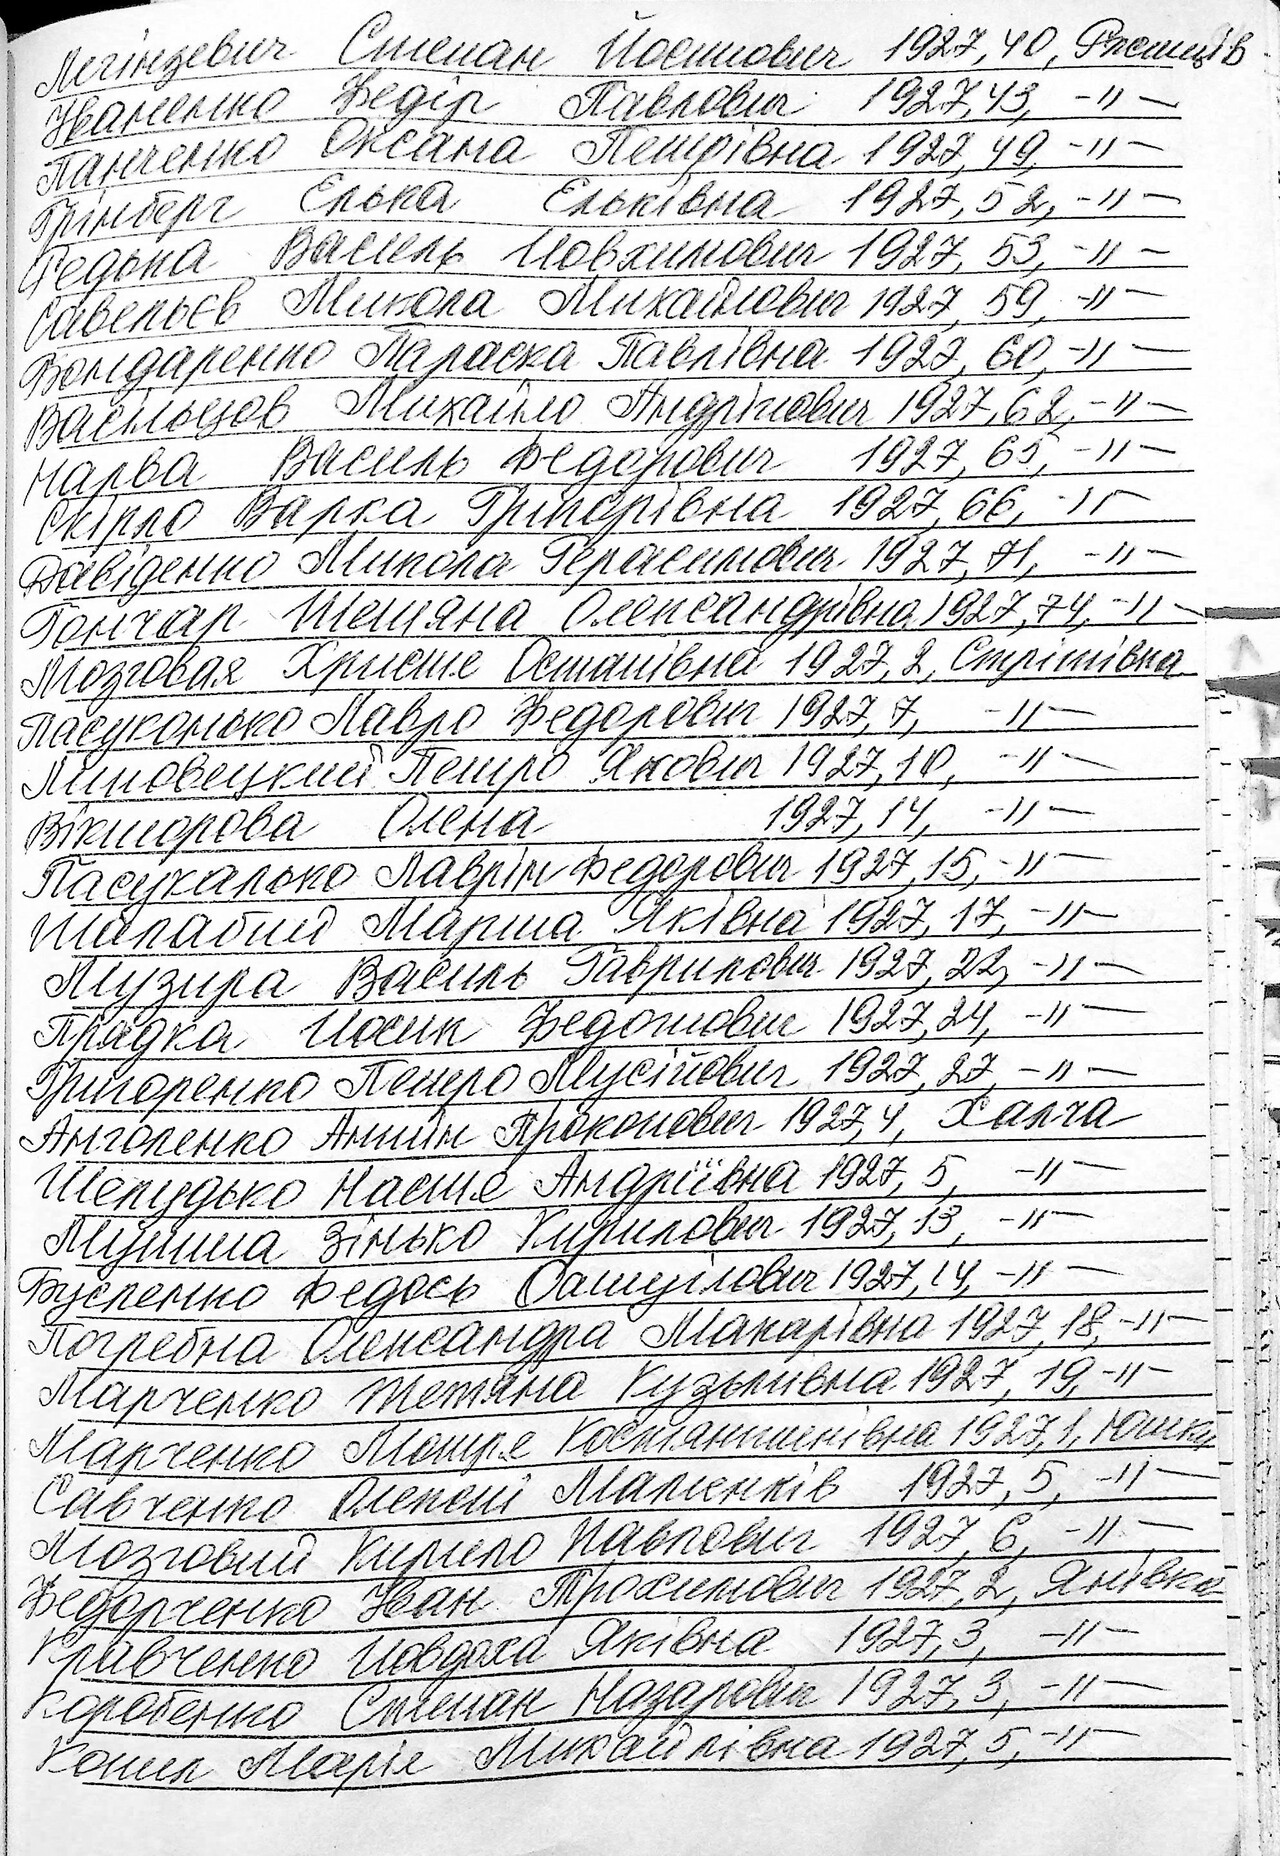 Легіндевич Степан Йосипович 1927, 40, Ржищів
Іваненко Федір Павлович 1927, 43, -"-
Панченко Оксана Петрівна 1927, 49, -"-
Грінберг Елька Ельківна 1927, 52, -"-
Редька Василь Йовхимович 1927, 53, -"-
Савельєв Микола Михайлович 1927, 59, -"-
Бондаренко Параска Павлівна 1927, 60, -"-
Васільцов Михайло Андрійович 1927, 62, -"-
Нарва Василь Федорович 1927, 65, -"-
Скірло Варка Григорівна 1927, 66, -"-
Давіденко Микола Герасимович 1927, 71, -"-
Гончар Тетяна Олександрівна 1927, 74, -"-
Мозговая Христя Остапівна 1927, 2, Стрітівка
Пасуконько Лавро Федорович 1927, 7, -"-
Липовецкий Петро Якович 1927, 10, -"-
Вікторова Олена 1927, 14, -"-
Пасухалько Лаврін Федорович 1927, 15, -"-
Шалабий Марта Яківна 1927, 17, -"-
Музира Василь Гаврилович 1927, 22, -"-
Прядка Йосип Федотович 1927, 24, -"-
Григоренко Петро Мусійович 1927, 27, -"-
Анголенко Антін Прокопович 1927, 4, Халча
Шепудько Настя Андріївна 1927, 5, -"-
Зінько Кирилович 1927, 13, -"-
Бусленко Федось Самуілович 1927, 14, -"-
Погребна Олександра Макарівна 1927, 18, -"-
Марченко Тетяна Кузьмівна 1927, 19, -"-
Марченко Мотря Костянтинівна 1927, 1, Юшки
Савченко Олексій 1927, 5, -"-
Мозговий Кирило Павлович 1927, 6, -"-
Федорченко Іван Трохимович 1927, 2, Янівка
Кравченко Йовдоха Яківна 1927, 3, -"-
Коробенко Степан Назарович 1927, 3, -"-
Марія Михайлівна 1927, 5, -"-